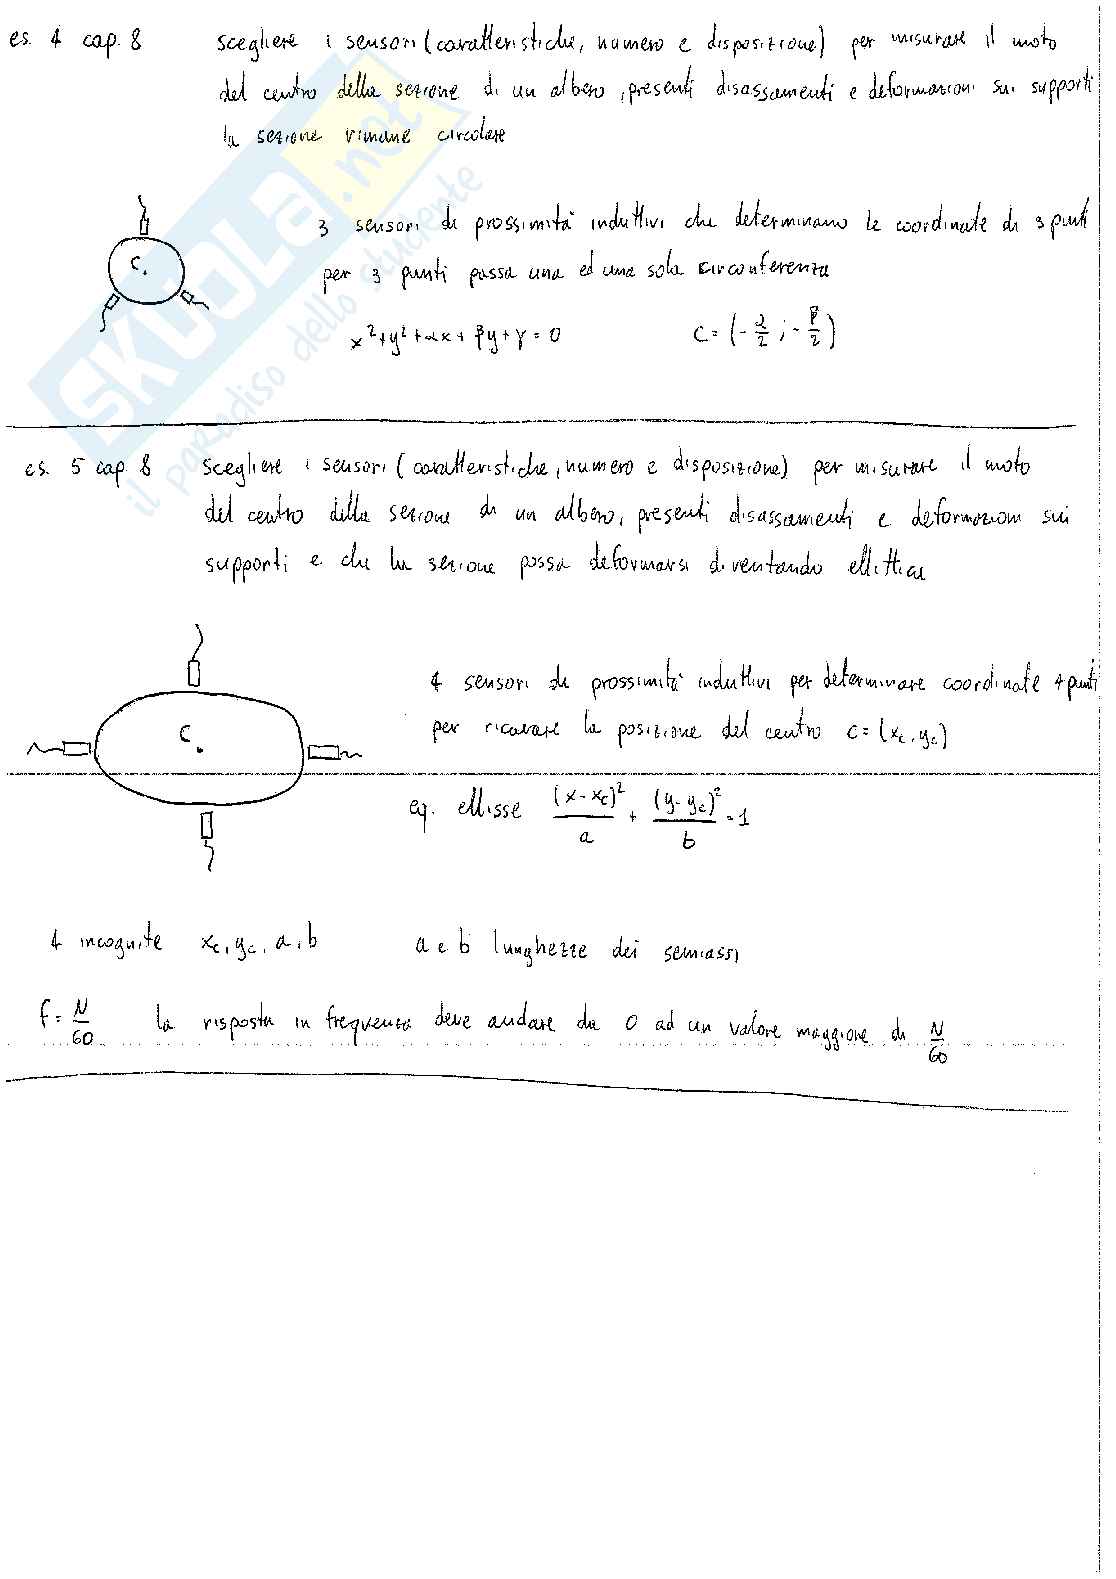 es. 4 cap. 8 scegliere i sensori (caratteristiche, numero e disposizione) per misurare il moto
del centro della sezione di un albero, presenti disassamenti e deformazioni sui supporti
la sezione rimane circolare
3 sensori di prossimità induttivi che determinano le coordinate di 3 punti
C.
per 3 punti passa una ed una sola circonferenza
x²+y²+αx+βy+γ=0 C=(-α/2 ; -β/2)
SKUOLA.net
il paradiso dello studente
es. 5 cap. 8 scegliere i sensori (caratteristiche, numero e disposizione) per misurare il moto
del centro della sezione di un albero, presenti disassamenti e deformazioni sui
supporti e che la sezione possa deformarsi diventando ellittica
4 sensori di prossimità induttivi per determinare coordinate 4 punti
C.
per ricavare la posizione del centro C=(xc, yc)
eq. ellisse (x-xc)²/a + (y-yc)²/b = 1
4 incognite xc, yc, a, b a e b lunghezze dei semiassi
f=N/60 la risposta in frequenza deve andare da 0 ad un valore maggiore di N/60